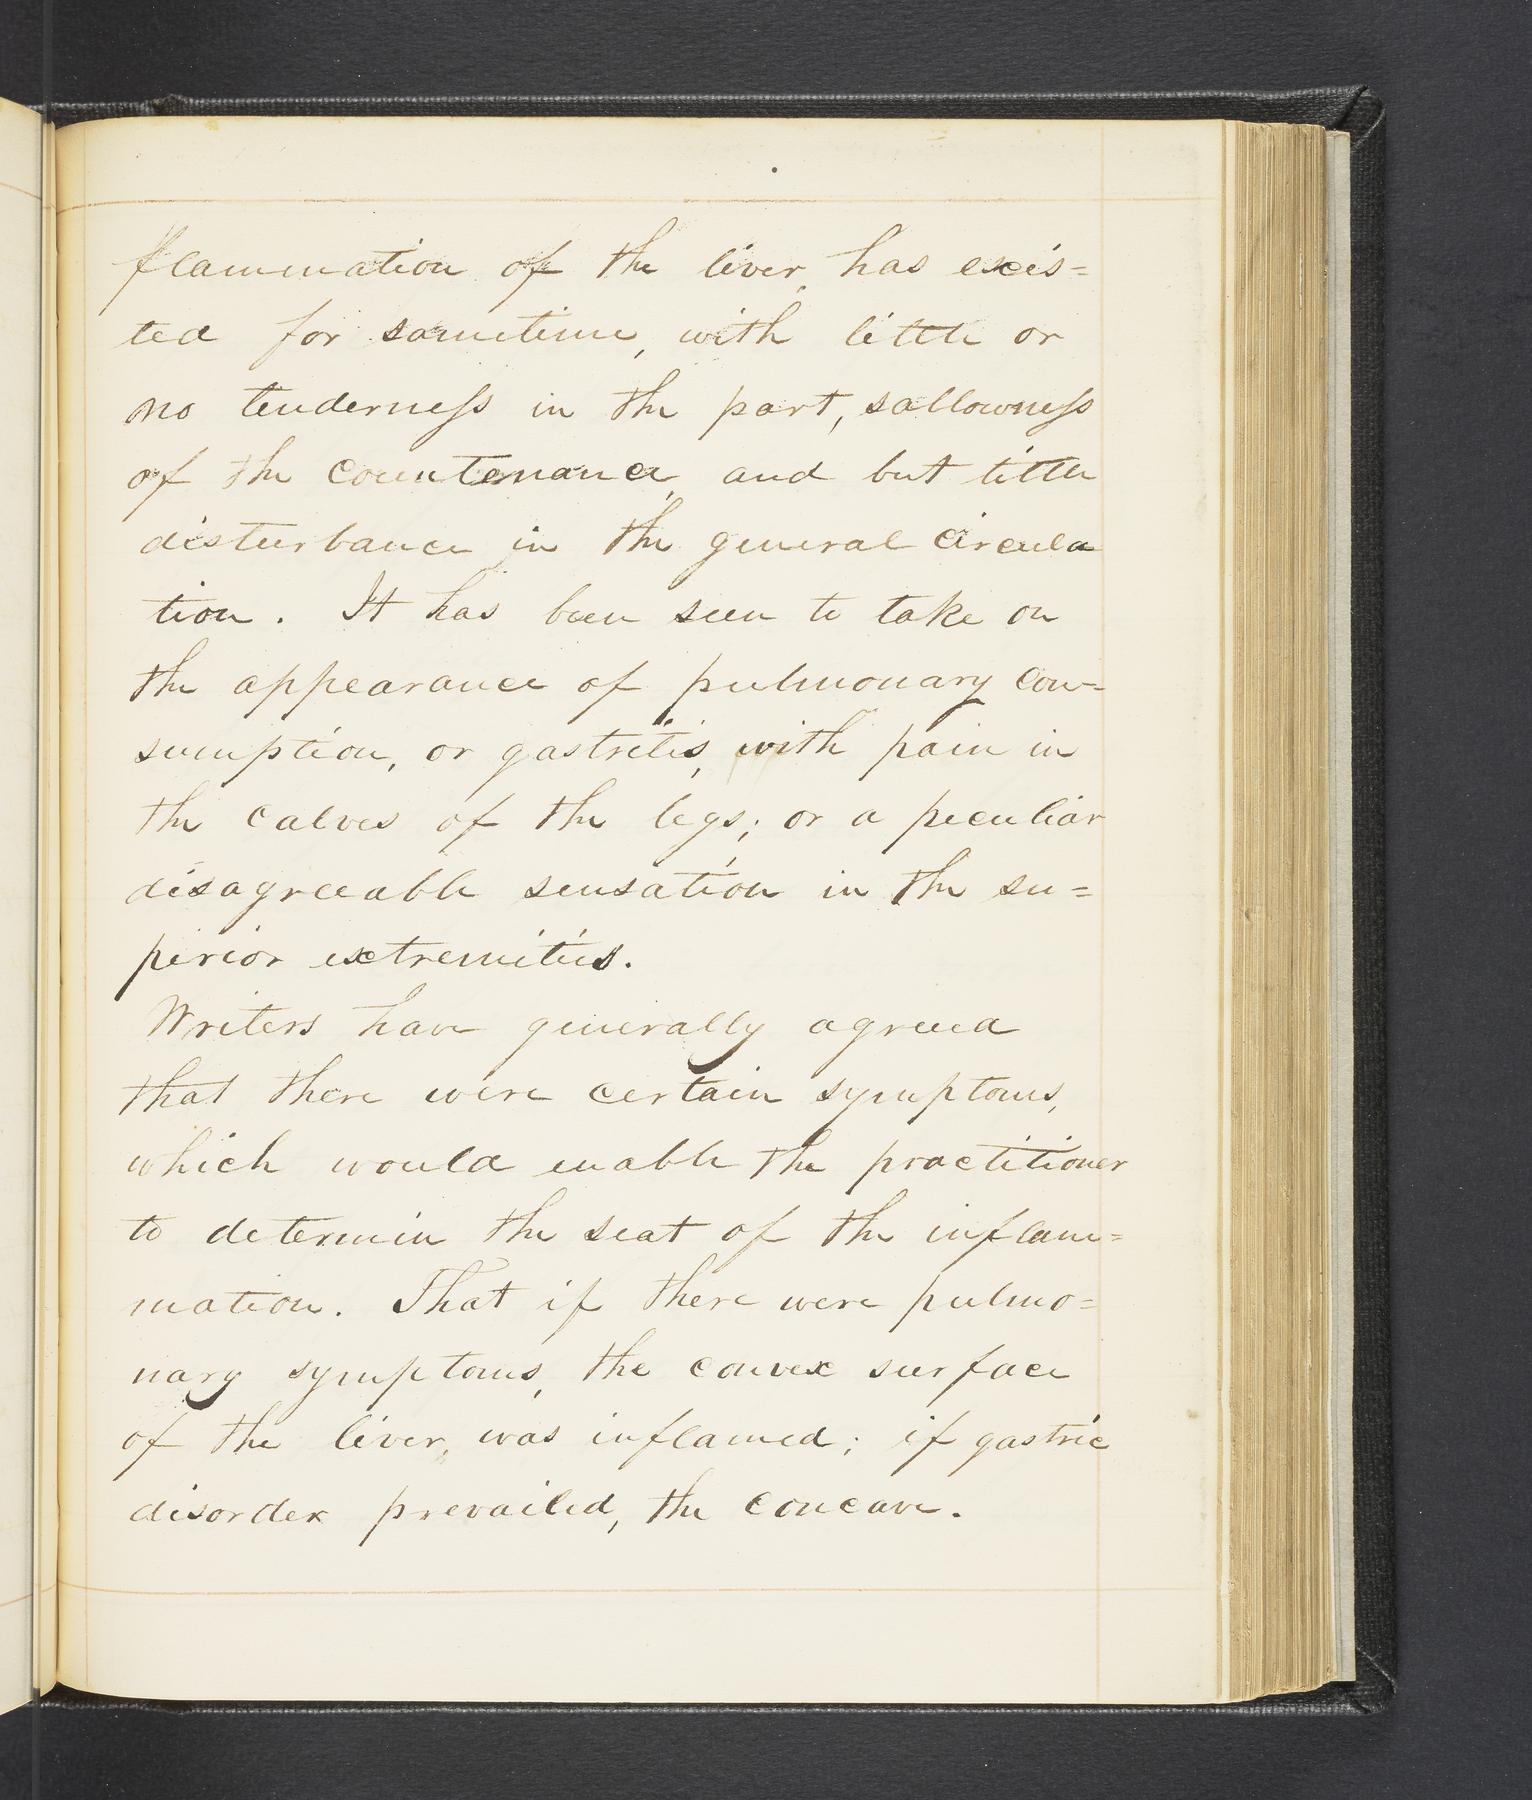 flammation of the liver, has exis=
ted for sometime, with little or
no tenderness in the part, sallowness
of the countenance, and but little
disturbance in the general circula
tion. It has been seen to take on
the appearance of pulmonary con-
sumption, or gastritis, with pain in
the calves of the legs; or a peculiar
disagreeable sensation in the su=
perior extremities.
Writers have generally agreed
that there were certain symptoms,
which would enable the practitioner
to determin the seat of the inflam=
mation. That if there were pulmo=
nary symptoms, the convex surface
of the liver, was inflamed; if gastric
disorder prevailed, the concave.